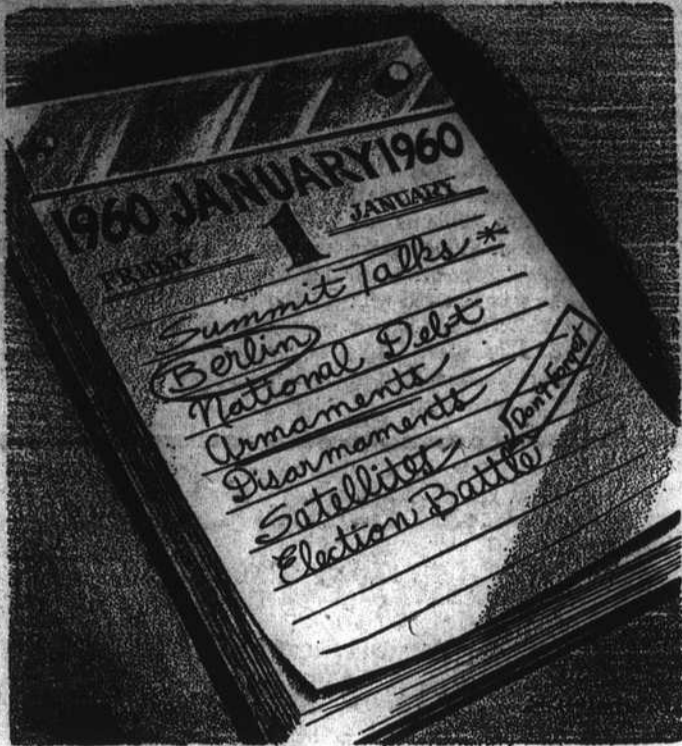 1960 JANUARY 1960
FRIDAY 1 JANUARY
Summit Talks *
Berlin
National Debt
Armaments
Disarmaments
Don't Forget
Satellites
Election Battle